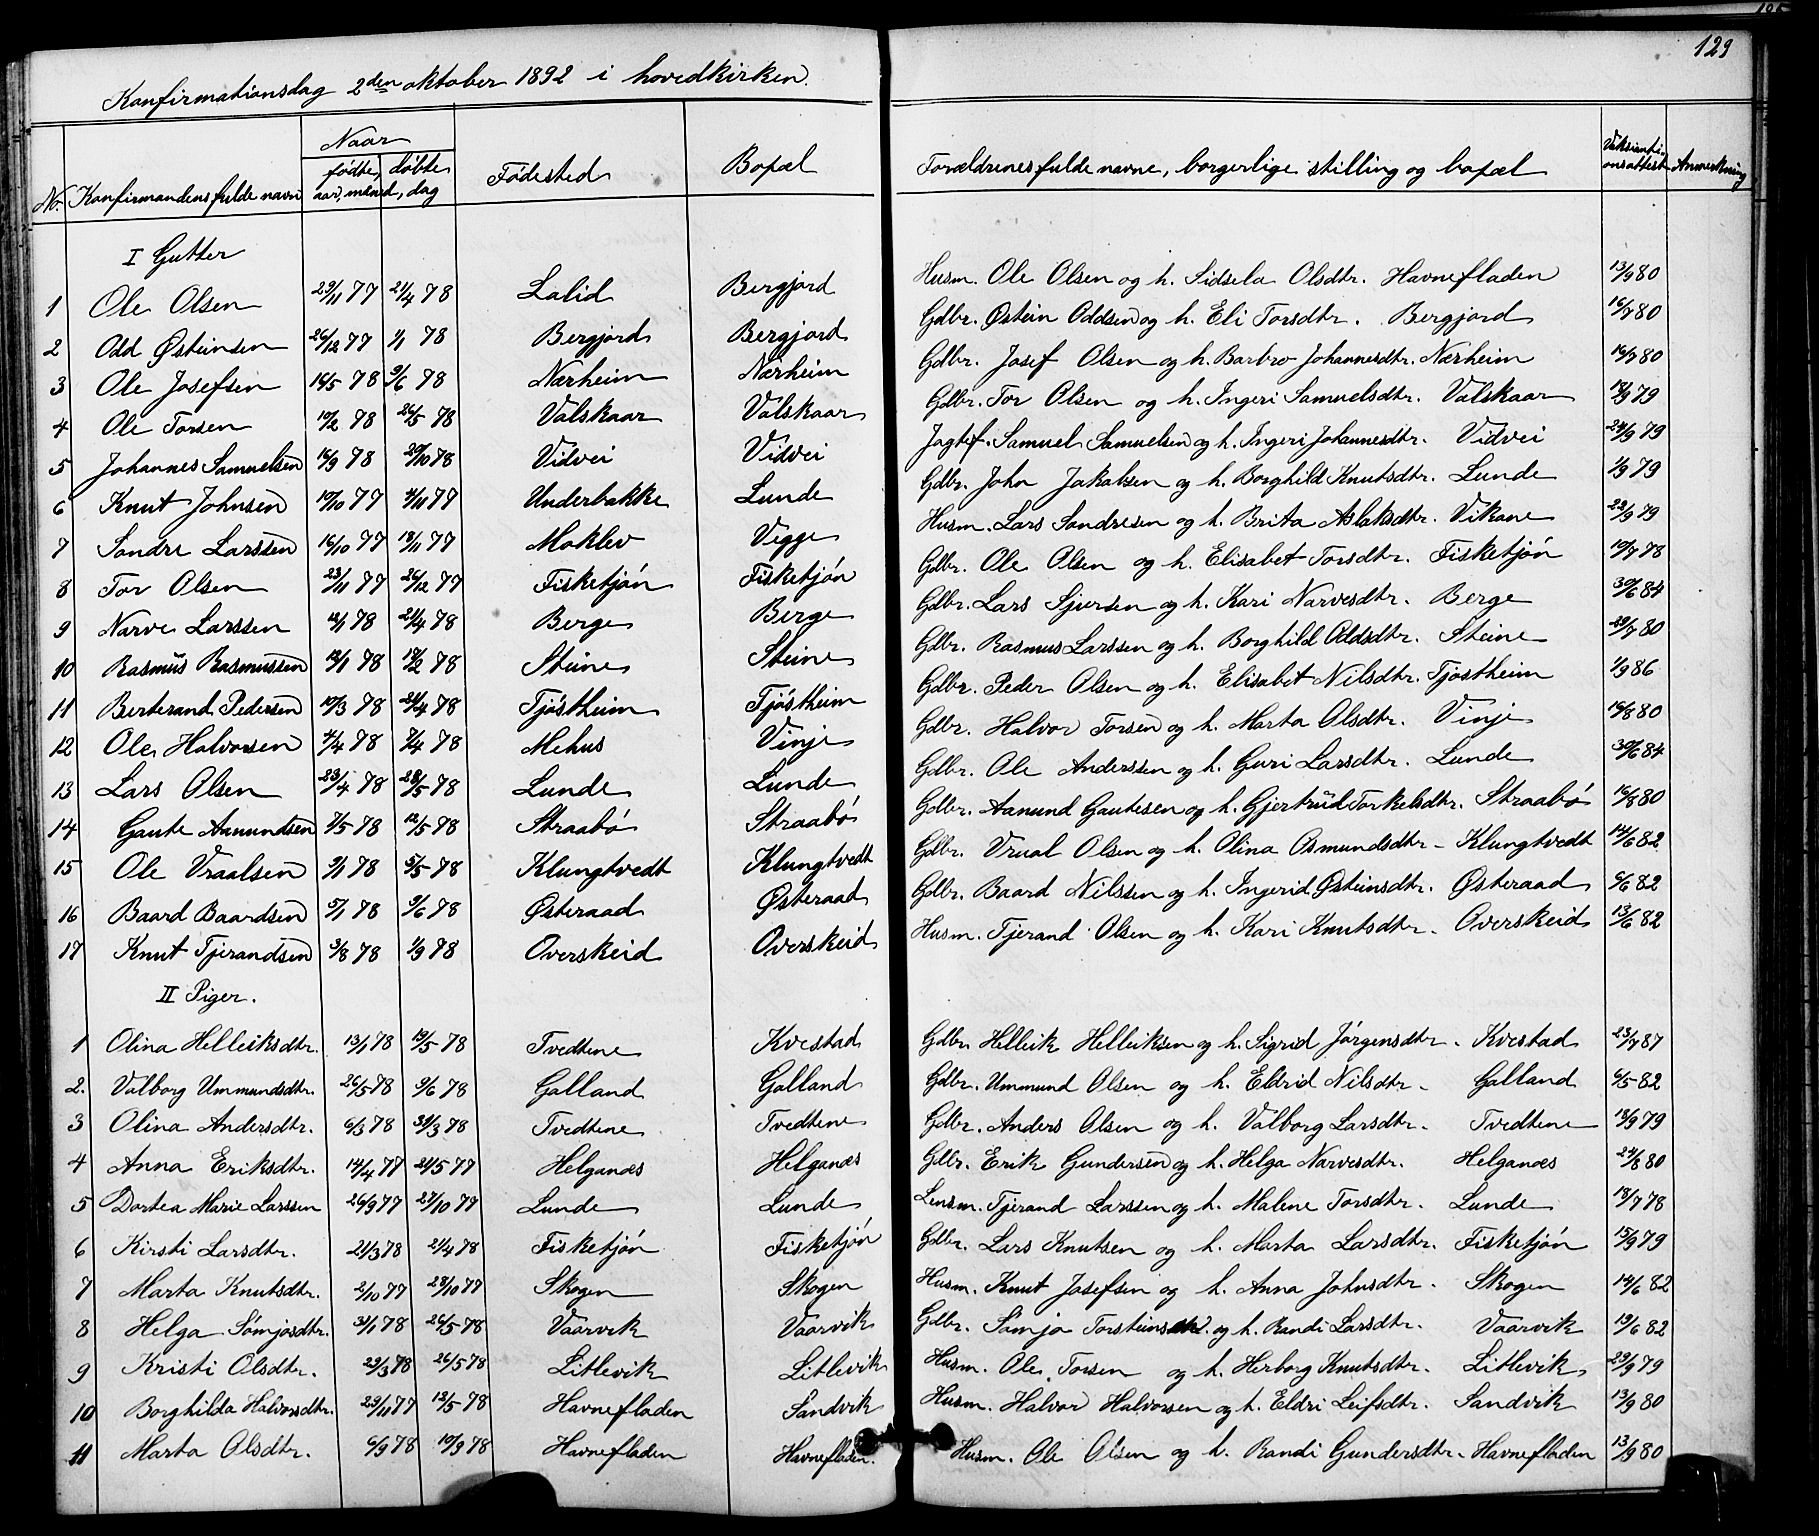 129
Konfirmationsdag 2den oktober 1892 i hovedkirken.
No. Konfirmandens fulde navn Naar fødte, døbte, aar, maaned, dag Fødested Bopæl Forældrenes fulde navne, borgerlige stilling og bopæl Vaksinationsattest Anmerkning
I Gutter
1 Ole Olsen 29/11 77 21/4 78 Lalid Bergjord Husm. Ole Olsen og h. Sidsela Olsdtr. Havnefladen 13/9 80
2 Odd Østeinsen 26/12 77 1/1 78 Bergjord Bergjord Gdbr. Østein Oddsen og h. Eli Torsdtr. Bergjord 16/7 80
3 Ole Josefsen 16/5 78 9/6 78 Nærheim Nærheim Gdbr. Josef Olsen og h. Barbro Johannesdtr. Nærheim 16/7 80
4 Ole Torsen 10/2 78 26/5 78 Valskaar Valskaar Gdbr. Tor Olsen og h. Ingeri Samuelsdtr. Valskaar 17/9 79
5 Johannes Samuelsen 16/9 78 20/10 78 Vidvei Vidvei Jagtef. Samuel Samuelsen og h. Ingeri Johannesdtr. Vidvei 24/9 79
6 Knut Johnsen 10/10 77 4/11 77 Underbakke Lunde Gdbr. John Jakobsen og h. Borghild Knutsdtr. Lunde 1/9 79
7 Sondre Larssen 16/10 77 18/11 77 Moklev Vegge Husm. Lars Sondresen og h. Brita Aslaksdtr. Vikane 22/9 79
8 Tor Olsen 23/11 77 26/12 77 Fisketjøn Fisketjøn Gdbr. Ole Olsen og h. Elisabet Torsdtr. Fisketjøn 10/7 78
9 Narve Larssen 12/1 78 21/4 78 Berge Berge Gdbr. Lars Sjursen og h. Kari Narvesdtr. Berge 30/6 84
10 Rasmus Rasmussen 13/1 78 17/2 78 Steine Steine Gdbr. Rasmus Larssen og h. Borghild Oddsdtr. Steine 29/7 80
11 Berterand Pedersen 10/3 78 21/4 78 Tjøstheim Tjøstheim Gdbr. Peder Olsen og h. Elisabet Nilsdtr. Tjøstheim 1/9 86
12 Ole Halvorsen 4/4 78 7/4 78 Mehus Vinje Gdbr. Halvor Torsen og h. Marta Olsdtr. Vinje 16/8 80
13 Lars Olsen 23/4 78 28/5 78 Lunde Lunde Gdbr. Ole Anderssen og h. Guri Larsdtr. Lunde 30/6 84
14 Gaute Aamundsen 7/5 78 12/5 78 Straabø Straabø Gdbr. Aamund Gautesen og h. Gjertrud Torkelsdtr. Straabø 16/8 80
15 Ole Vraalsen 9/1 78 5/5 78 Klungtvedt Klungtvedt Gdbr. Vraal Olsen og h. Olina Osmundsdtr - Klungtvedt 14/6 82
16 Baard Baardsen 5/1 78 9/6 78 Østeraad Østeraad Gdbr. Baard Nilssen og h. Ingerid Østeinsdtr. Østeraad 6/6 82
17 Knut Tjerandsen 3/8 78 1/9 78 Overskeid Overskeid Husm. Tjerand Olsen og h. Kari Knutsdtr. Overskeid 13/6 82
II Piger.
1 Olina Helleiksdtr. 13/1 78 19/5 78 Tvedtene Kvestad Gdbr. Helleik Helleiksen og h. Sigrid Jørgensdtr. Kvestad 23/7 87
2. Valborg Ummundsdtr. 26/5 78 9/6 78 Galland Galland Gdbr. Ummund Olsen og h. Eldrid Nilsdtr. Galland 6/5 82
3 Olina Andersdtr. 6/3 78 31/3 78 Tvedtene Tvedtene Gdbr. Anders Olsen og h. Valborg Larsdtr. Tvedtene 18/9 79
4 Anna Eriksdtr. 14/4 77 21/5 77 Helganæs Helganæs Gdbr. Erik Gundersen og h. Helga Narvesdtr. Helganæs 24/8 80
5 Dortea Marie Larssen 26/9 77 27/10 77 Lunde Lunde Lensm. Tjerand Larssen og h. Malene Torsdtr. Lunde 18/7 78
6 Kirsti Larsdtr. 21/3 78 21/4 78 Fisketjøn Fisketjøn Gdbr. Lars Knutsen og h. Marta Larsdtr. Fisketjøn 15/9 79
7 Marta Knutsdtr. 2/10 77 28/10 77 Skogen Skogen Husm. Knut Josefsen og h. Anna Johnsdtr. Skogen 14/6 82
8 Helga Sømjosdtr. 31/1 78 26/5 78 Vaarvik Vaarvik Gdbr. Sømjo Torsteins og h. Randi Larsdtr. Vaarvik 19/6 82
9 Kristi Olsdtr. 23/3 78 26/5 78 Litlevik Litlevik Husm. Ole Torsen og h. Herborg Knutsdtr. Litlevik 29/9 79
10 Borghilda Halvorsdtr. 23/11 77 12/5 78 Havnefladen Sandvik Husm. Halvor Halvorsen og h. Eldri Leifsdtr. Sandvik 13/9 80
11 Marta Olsdtr. 6/9 78 10/9 78 Havnefladen Havnefladen. Husm. Ole Olsen og h. Randi Gundersdtr. Havnefladen 13/9 80